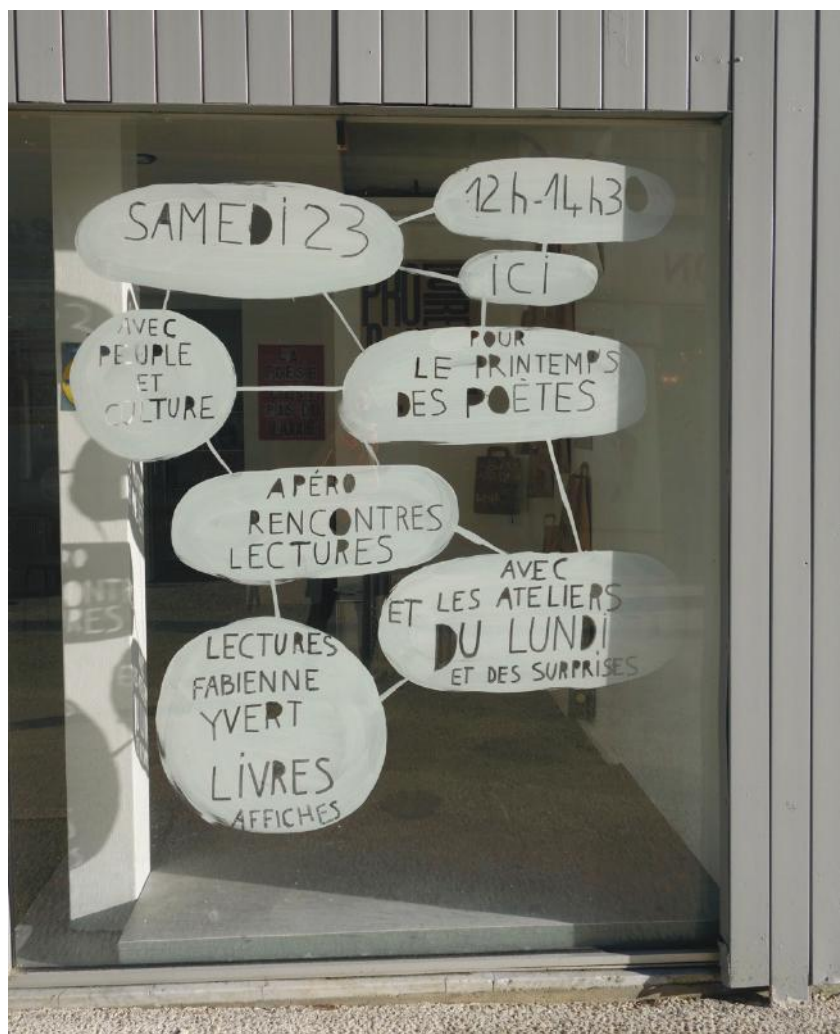 SAMEDI 23
12h-14h30
iCi
AVEC
PEUPLE
ET
CULTURE
POUR
LE PRINTEMPS
DES POÈTES
APÉRO
RENCONTRES
LECTURES
AVEC
ET LES ATELIERS
DU LUNDI
ET DES SURPRISES
LECTURES
FABIENNE
YVERT
LIVRES
AFFICHES